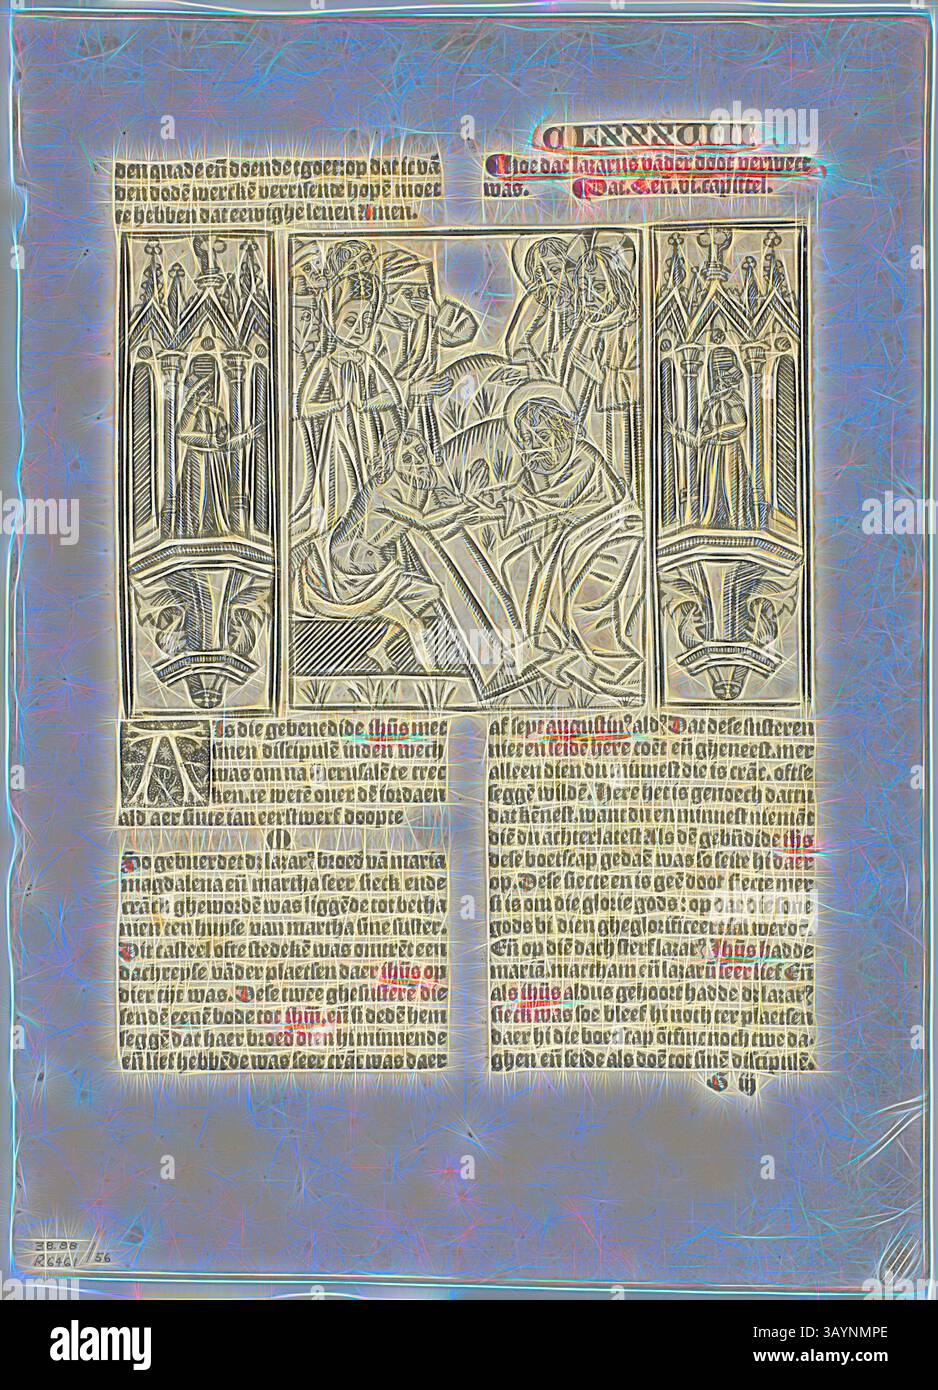 C LXXXCIII
den quade en̄ doende tgoet: op dat ic vā
den dodē wercke verrisende hopē moet
te hebben dat eewighe leuen Amen.
Choe dat lazarus vāder doot verwect
was. Dat. & en. vi. capittel.
Als die gebenedide ihūs met
sinen discipulē
was om na iherusalē te trec
ken. te werē ouer dē iordaen
ald aer sinte ian eerstwerf doopte
So gebuerdet dz lazar⁹ broed vā maria
magdalena en̄ martha seer sieck ende
cranck ghewordē was liggēde tot betha
nien ten huyse van martha sine suster.
Dit casteel ofte stedekē
dachreyse vāder plaetsen daer ihūs op
die tijt was. Dese twee ghesusterē die
sendē eenē bode tot ihm̄, en̄ si dedē hem
seggē dat haer broed dien hi minnende
en̄ lief hebbēde was seer crāc was daer
af seyt augustin⁹ ald⁹ Dat dese susteren
niet en seidē here coēt en̄ gheneest. mer
alleen dien du mīnest die is crāc. oft se
seggē wildē. Here het is genoech dattu
dat kēnest. want du en mīnest niemant
diē du achter latest Als dē gebn̄dide ihūs
dese boetscap gedaē was so seide hi daer
op. Dese siecte en is geē doot siecte mer
si is om die glorie gods: op dat die sone
gods bi dien gheglorificeert sal werdē.
En̄ op dʼē dach sterf lazar⁹ Ihūs hadde
mariā. martham en̄ lazarū seer lief En̄
als ihūs aldus gehoort hadde dz lazar⁹
sieck was soe bleef hi noch ter plaetsen
daer hi die boetscap ōtfinc noch twe da-
ghen en̄ seide als doē tot sinē discipulē.
S iij
38.86
R6461/56
alamy
Image ID: 3AYNMPE
www.alamy.com